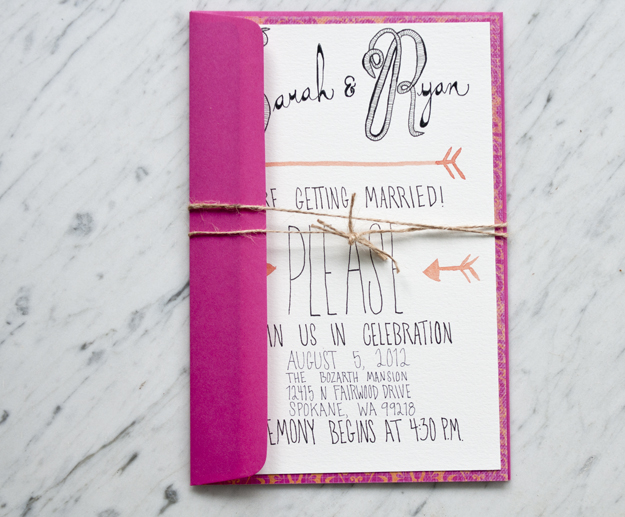 Sarah & Ryan
RE GETTING MARRIED!
PLEASE
IN US IN CELEBRATION
AUGUST 5, 2012
THE BOZARTH MANSION
12415 N FAIRWOOD DRIVE
SPOKANE, WA 99218
EMONY BEGINS AT 4:30 P.M.